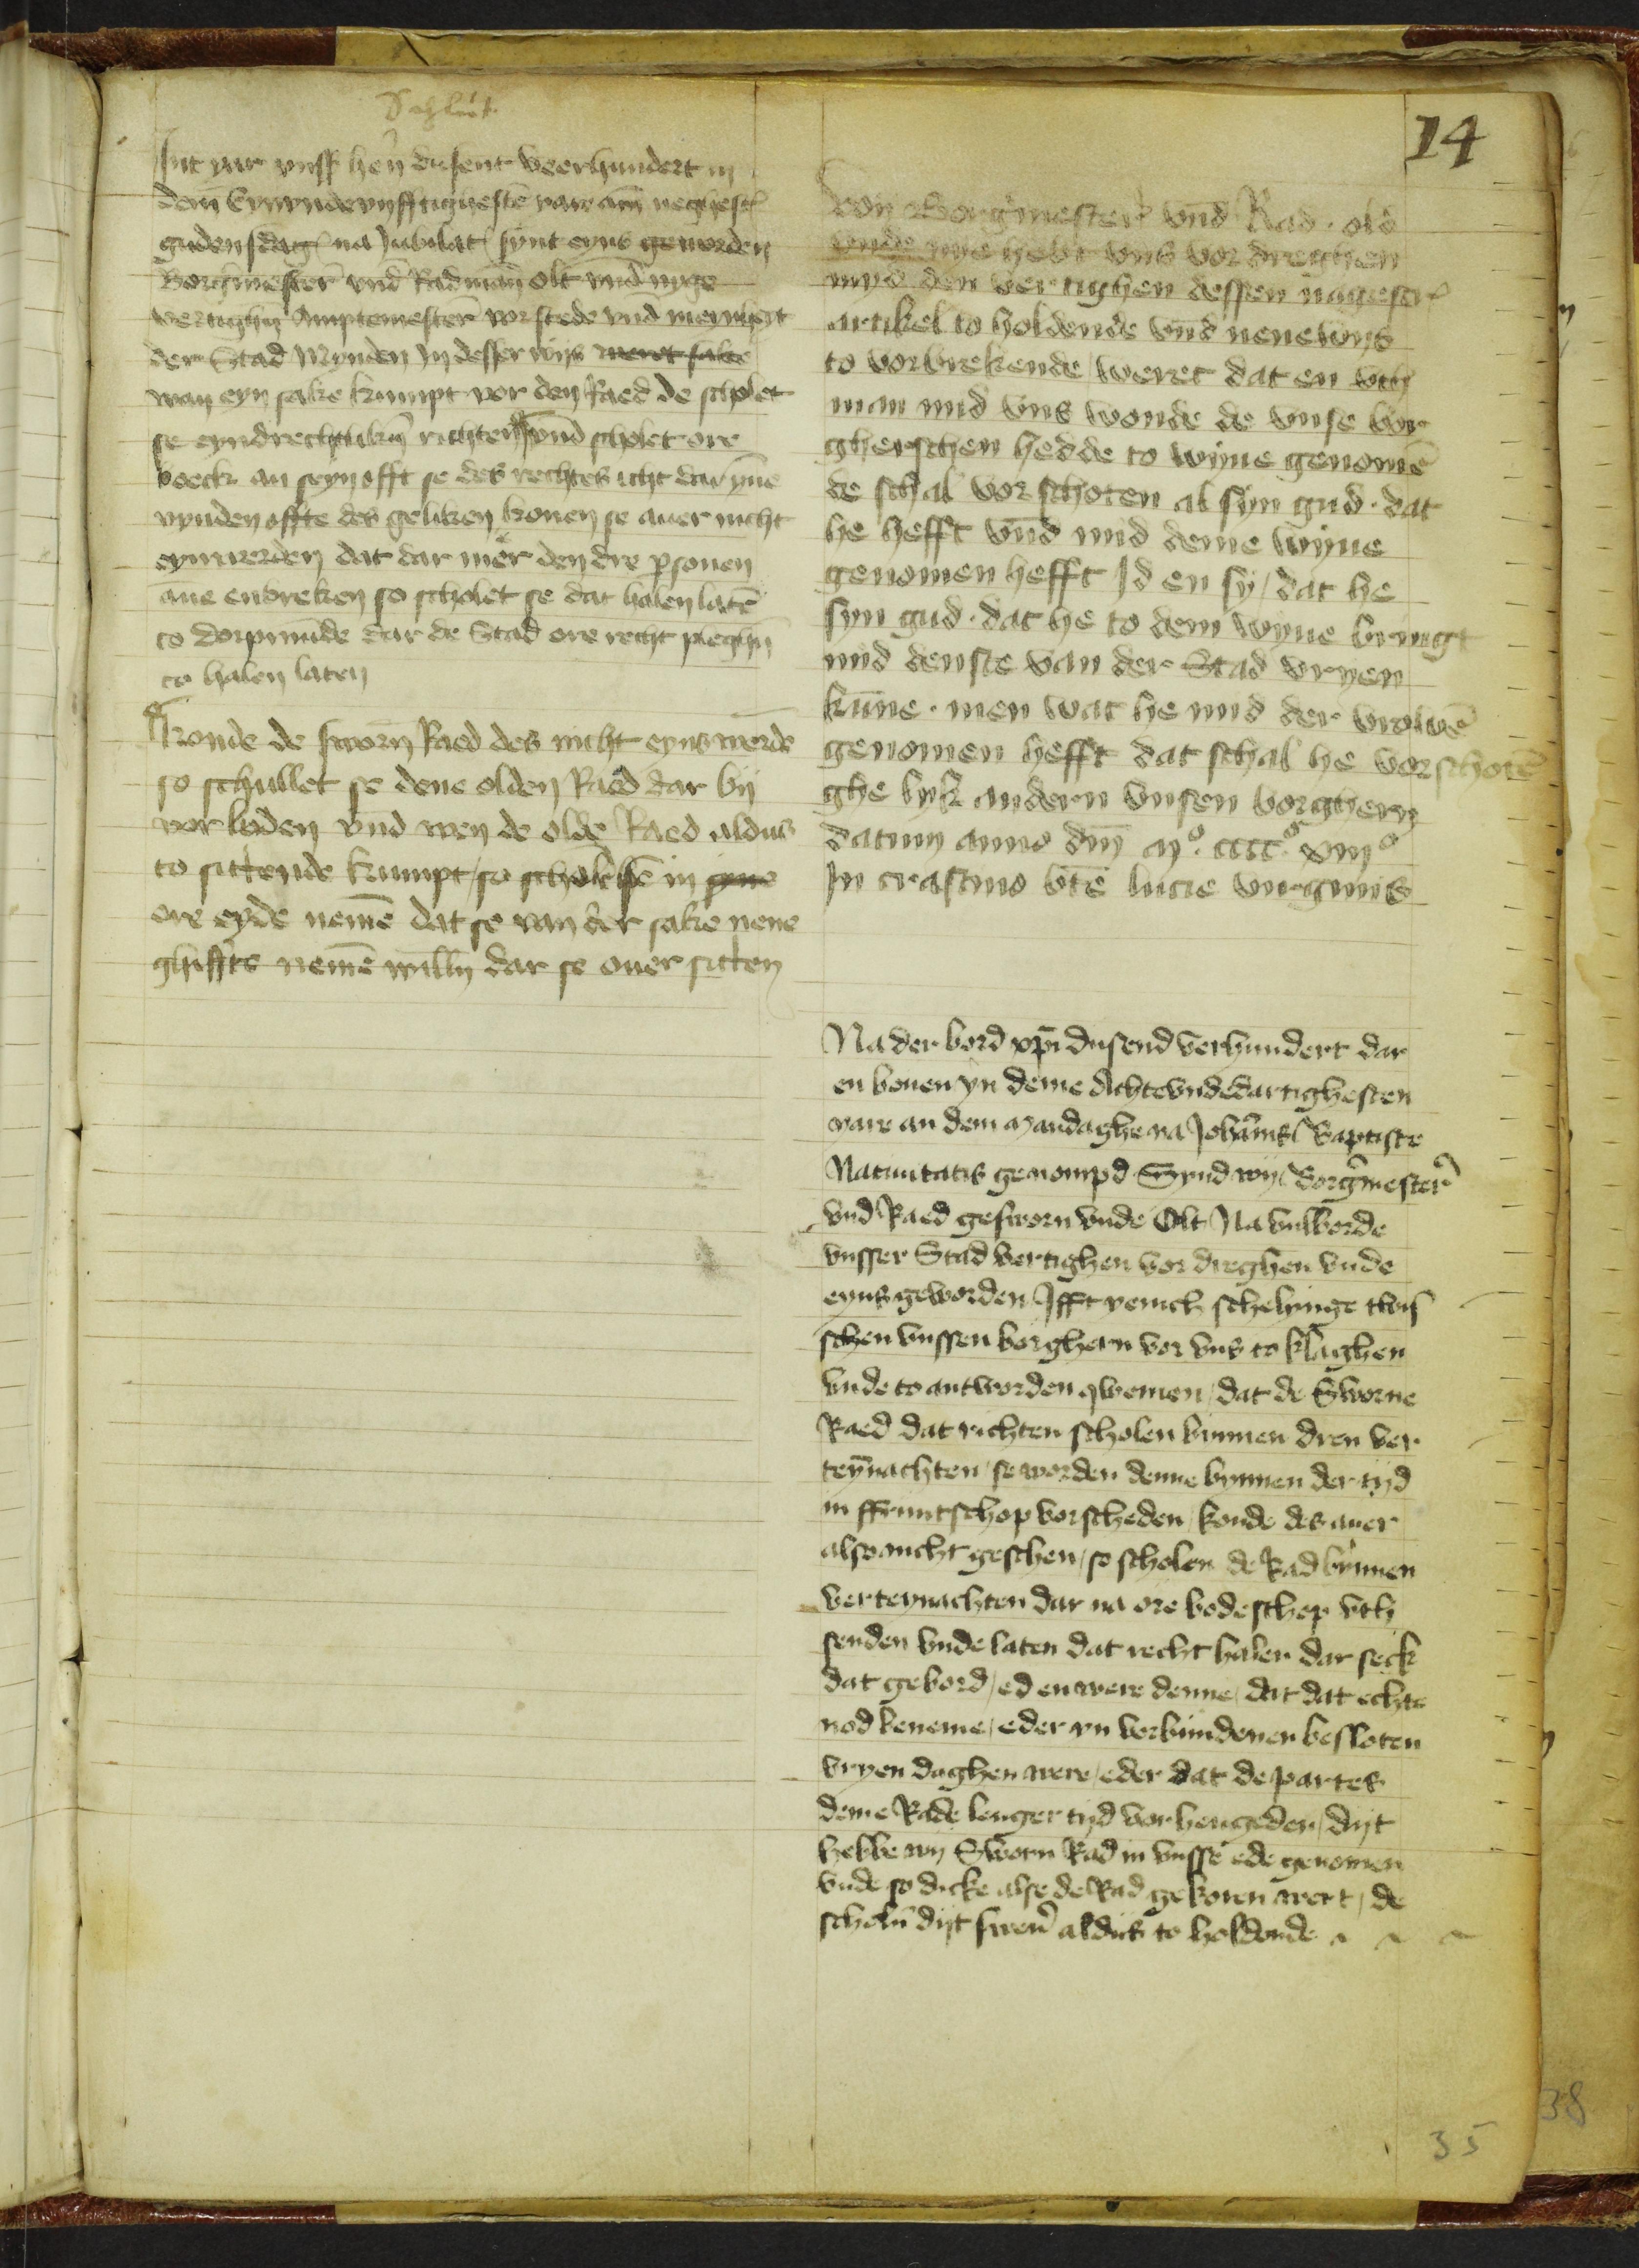 Int iar unss hern dusent veerhundert in
dem Eynundevyfftigheste iare am neghest
gudensdag na Jubilate synt eyns geworden
Borgmester und Radman olt und nyge
vertighn Amptemester vorstede und meynheyt
der Stad Mynden In desser wijs weret sake
wan eyn sake kumpt vor den Raed de scholet
se eyndrechtlikn richten und scholet ore
boeck an seyn offt se des rechtes icht dar ynne
vynden offte des geliken konen se aver nicht
eynwerden dat dar mer den dre psonen
ane enbreken so scholet se dat halen late
to dorpmunde dar de Stad ore recht pleghn
to halen laten
konde de sworn Raed des nicht eyns werde
so schullet se dene olden Raed dar bij
vorboden und wen de olde Raed aldus
to sittende kumpt so scholet se in syne
ore eyde neme dat se van der sake nene
ghiffte neme willn dar se over sitten
14
Wy Borgmester und Rad old
unde nye hebt uns vordreghen
myd den vertighen dessen nagescr
artikel to holdende und nenewys
to vorbrekende weret dat en uth
man mid uns wonde de unse bor
gherschen hedde to wijve genome
de schal vorschoten al syn gud dat
he hefft und mid deme wijve
genomen hefft Id en sy dat he
syn gud dat he to dem wyve bringt
mid denste van der Stad vryen
kunne men wat he mid der vrowe
genomen hefft dat schal he vorschote
ghelyk andern unsen borghern
datum anno dm mº ccccº xviijº
In crastino bte lucie virginis
Na der bord xpi dusend verhundert dar
en boven yn deme Achteundedartighesten
iare an dem mandaghe na Johannis Baptiste
Nativitatis genompd Synd wy Borgmester
und Raed gesworn unde Olt Na vulborde
unsser Stad vertighen vordreghen unde
eyns geworden Ifft yenich schelinge twis
schen unssen borghern vor uns to klaghen
unde to antworden qwemen dat de Sworne
Raed dat richten scholen binnen dren ver
teynachten se worden denne bynnen der tijd
in ffruntschop vorscheden konde des aver
also nicht geschen so scholen de Rad bynnen
verteynachten dar na ore bodeschop uth
senden unde laten dat recht halen dar seck
dat gebord ed en were denne dat dat echte
nod beneme eder yn vorbundenen besloten
vryen daghen were eder dat de partes
deme Rade lenger tijd vorhengeden dijt
hebbe wy Sworn Rad in unsse ede genomen
unde so dicke alse de Rad gekoren wert de
scholn dijt swern aldus to holdende
35
38